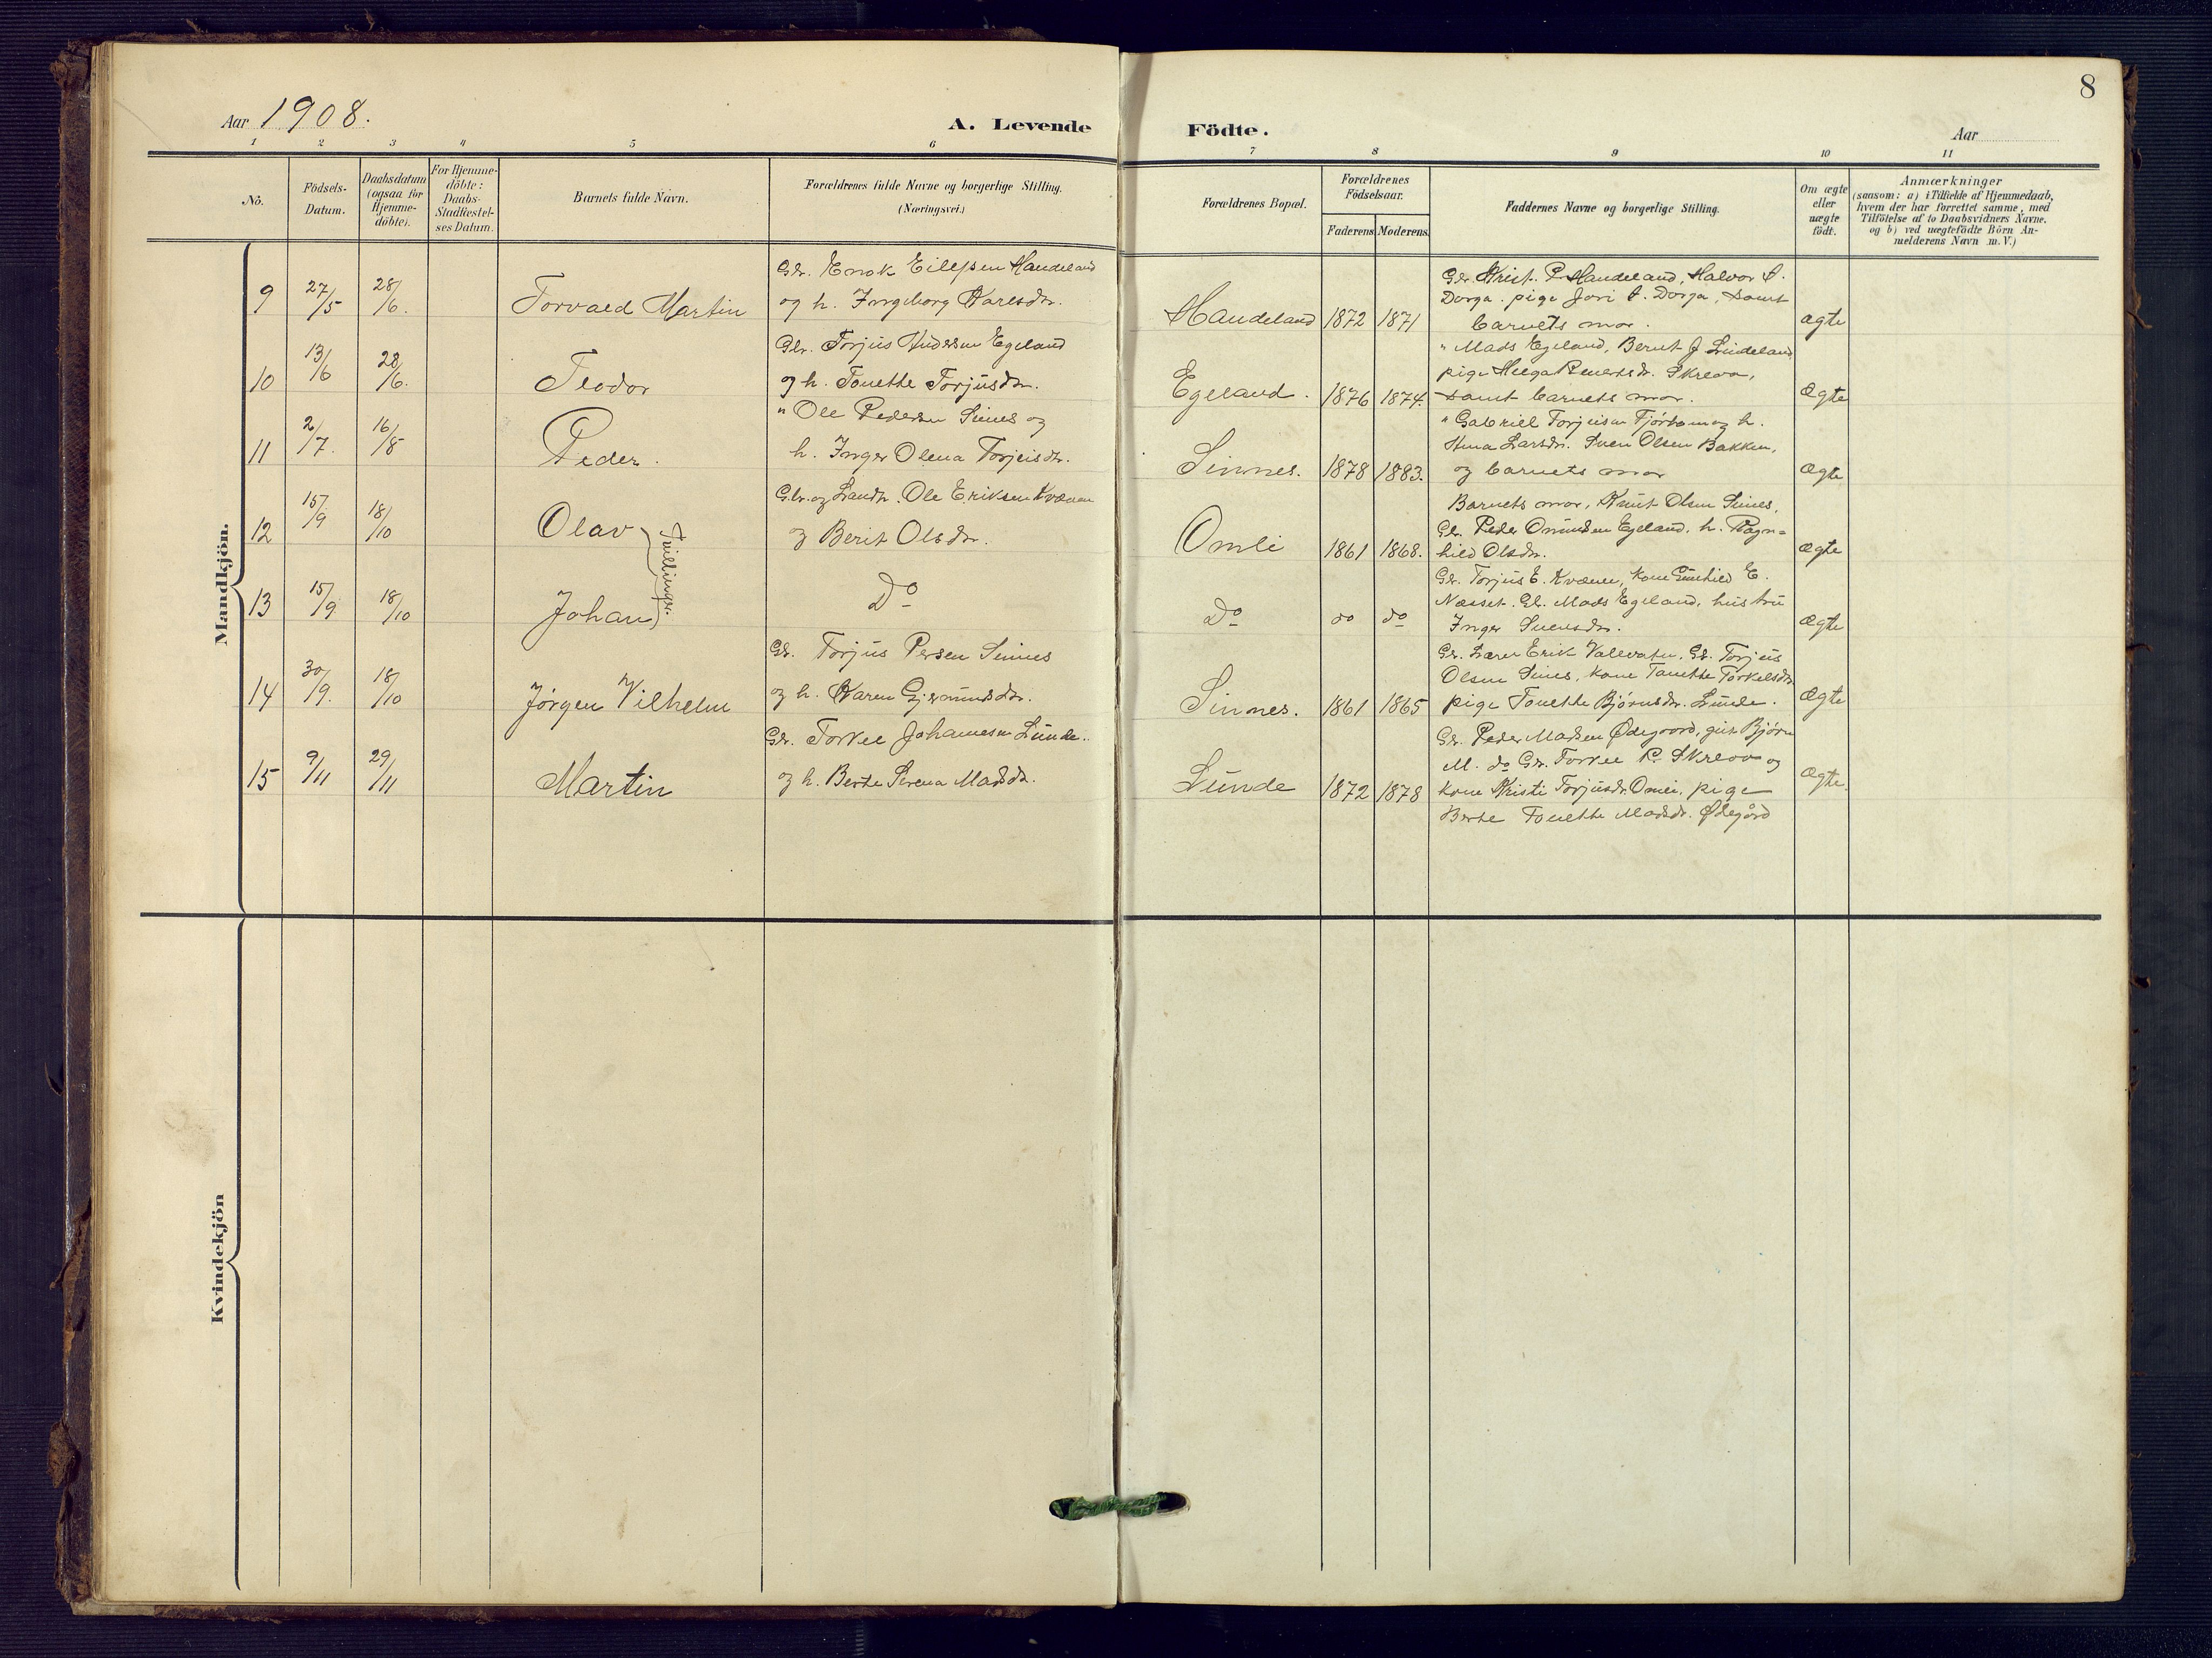 8
Aar 1908.
A. Levende Födte.
Aar
1 2 3 4 5 6 7 8 9 10 11
No.
Födsels-
Datum.
Daabsdatum
(ogsaa for
Hjemme-
döbte).
For Hjemme-
döbte:
Daabs-
Stadfæstel-
ses Datum.
Barnets fulde Navn.
Forældrenes fulde Navne og borgerlige Stilling.
(Næringsvei.)
Forældrenes Bopæl.
Forældrenes
Födselsaar.
Faderens Moderens
Faddernes Navne og borgerlige Stilling.
Om ægte
eller
uægte
födt.
Anmærkninger
(saasom: a) i Tilfælde af Hjemmedaab,
hvem der har forrettet samme, med
Tilföielse af to Daabsvidners Navne.
og b) ved uægtefödte Börn An-
melderens Navn m.V.)
Mandkjön.
9 27/5 28/6. Torvald Martin
Gbr. Enok Eilefsen Haudeland
og h. Ingeborg Karlsdtr.
Haudeland 1872 1871
Gbr. Krist. P. Haudeland, Halvor A.
Dorga. pige Jori A. Dorga, samt
barnets mor.
ægte
10 13/6 28/6. Teodor
Gbr. Torjus Andersen Egeland
og h. Tonette Torjusdtr.
Egeland. 1876 1874.
" Mads Egeland, Bernt J. Lindeland
pige Helga Reiersdr. Skreva,
samt barnets mor.
Ægte
11 2/7. 16/8 Peder.
" Ole Pedersen Sines og
h. Inger Olena Torjeisdr.
Sinnes. 1878 1883.
" Gabriel Torjeisen Tjørhom og h.
Anna Larsdr. Sven Olsen Bakken,
og barnets mor
Ægte
12 15/9 18/10 Olav
Gbr. og Landh. Ole Eriksen Kvæven
og Berit Olsdr.
Omli 1861 1868.
Barnets mor, Knut Olsen Sines,
Gb. Peder Omundsen Egeland, h. Ragn-
hild Olsdr.
Ægte
Tvillinger.
13 15/9 18/10 Johan
Do
Do do do
Gb. Torjus E. Kvæven, kone Gunhild E.
Næsset. Gb. Mads Egeland, hustru
Inger Svensdr.
Ægte
14 30/9. 18/10 Jørgen Vilhelm
Gb. Torjus Persen Sines
og h. Karen Gjermundsdr.
Sinnes. 1861 1865
Gb. Lærer Erik Vallevatn. Gb. Torjus
Olsen Sines, kone Tanette Torkelsdr.
pige Tonette Bjørnsdr. Lunde.
Ægte
15 9/11 29/11 Martin
Gb. Torkel Johannesen Lunde..
og h. Berte Serena Madsdr.
Lunde 1872 1878
Gb. Peder Madsen Ødegaard, gut Bjørn
M. do Gb. Torkel P. Skreva og
kone Kristi Torjusdr. Omli, pige
Berte Tonette Madsdr. Ødegård
Ægte.
Kvindekjön